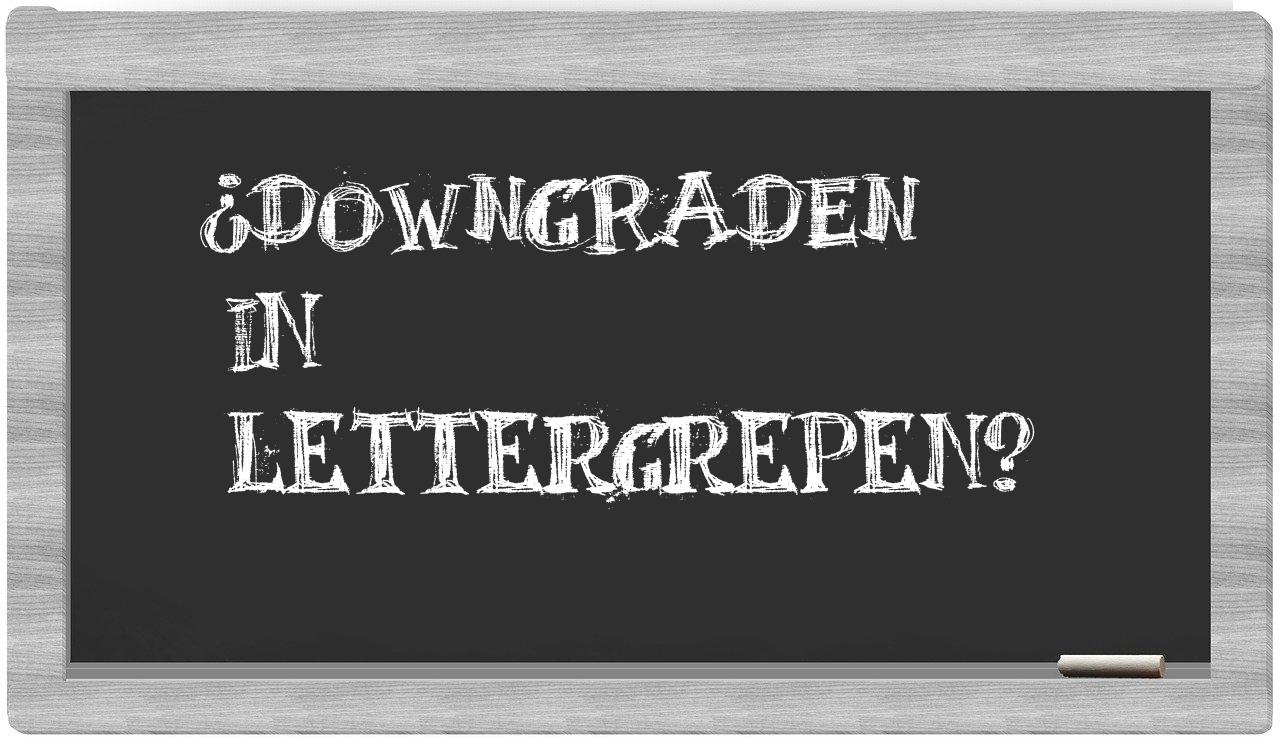 ¿DOWNGRADEN
IN
LETTERGREPEN?